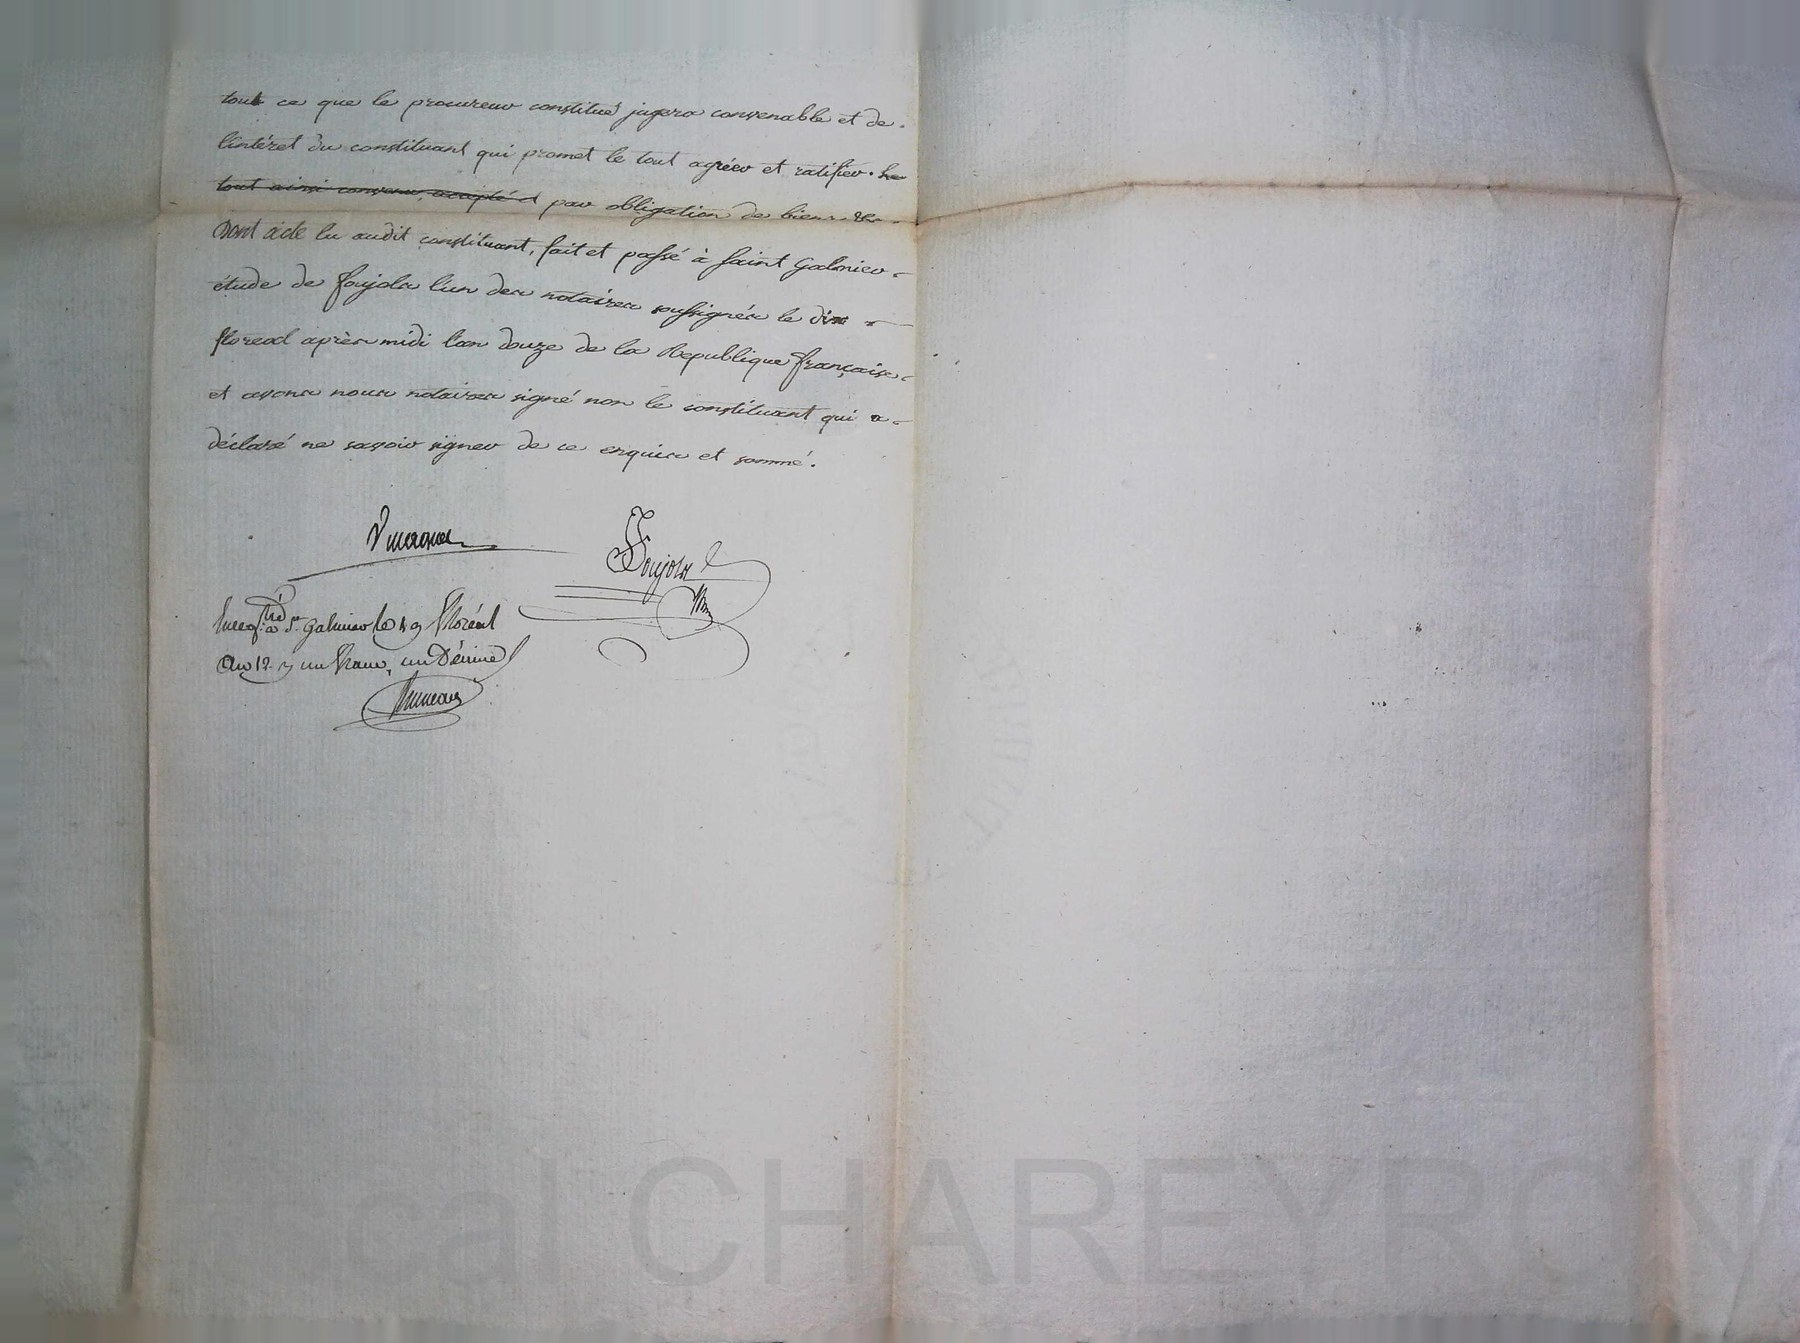 tout ce que le procureur constitué jugera convenable et de
l'intéret du constituant qui promet le tout agréer et ratifier. Le
tout ainsi convenu, accepté et par obligation de biens &c
Dont acte lu audit constituant, fait et passé à Saint Galmier
étude de Foujols l'un des notaires soussignés le dix
floreal après midi l'an douze de la Republique française
et avons nous notaires signé non le constituant qui a
déclaré ne savoir signer de ce enquis et sommé.
Foujols
Enreg.tré à St. Galmier le 19 floréal
an 12. un franc, un Décime
cal CHAREYRON